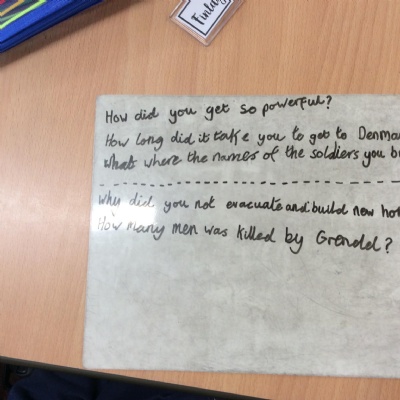 Finlay
How did you get so powerful?
How long did it take you to get to Denma
what where the names of the soldiers you b
Why did you not evacuate and build new ho
How many men was killed by Grendel?